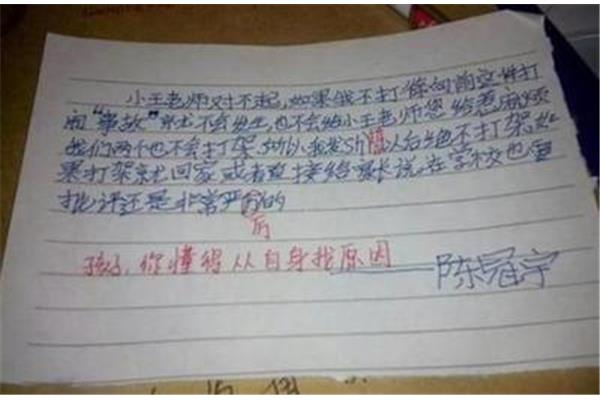 小王老师对不起,如果俄不打徐向前这件打
闹“事故”就不会发生,也不会给小王老师您给惹麻烦
我们两个也不会打架,所以我发所 以后绝不打架,如
果打架就回家或者直接给家长说,在学校也
批评还是非常严 的
厉
孩子,你懂得从自身找原因
陈冠宇